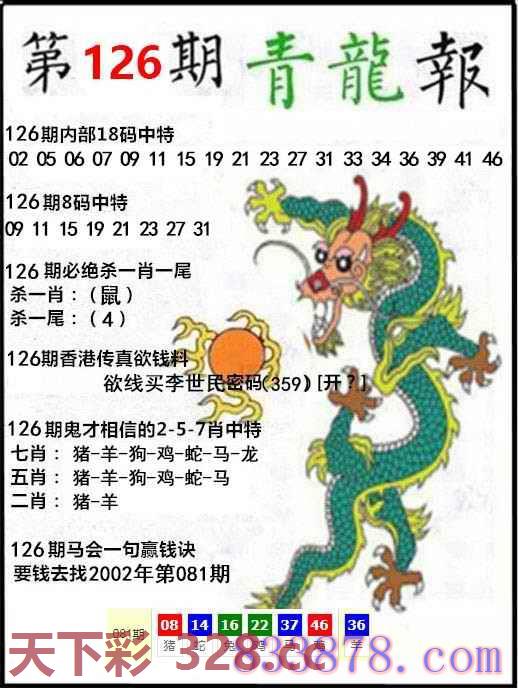 第126期青龍報
126期内部18码中特
02 05 06 07 09 11 15 19 21 23 27 31 33 34 36 39 41 46
126期8码中特
09 11 15 19 21 23 27 31
126期必绝杀一肖一尾
杀一肖：(鼠)
杀一尾：(4)
126期香港传真欲钱料
欲线买李世民密码(359)[开？]
126期鬼才相信的2-5-7肖中特
七肖： 猪-羊-狗-鸡-蛇-马-龙
五肖： 猪-羊-狗-鸡-蛇-马
二肖： 猪-羊
126期马会一句赢钱诀
要钱去找2002年第081期
081期 08 14 16 22 37 46 36
猪 蛇 兔 鸡 马 羊
天下彩 328.cc
833878.com